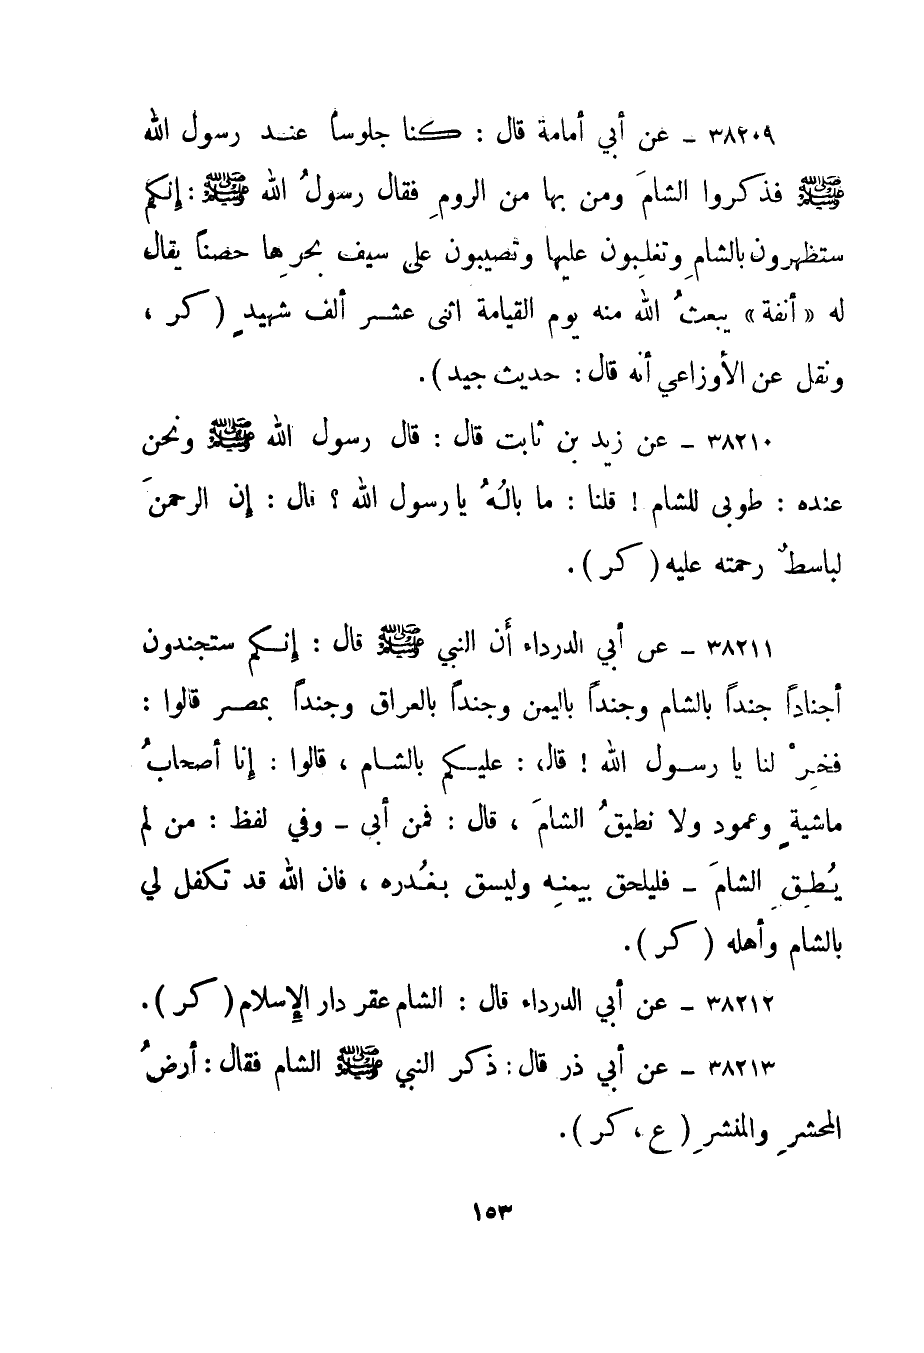 ٣٨٢٠٩ ـ عن أبي أمامة قال : كنا جلوساً عند رسول الله
ﷺ فذكروا الشامَ ومن بها من الرومِ فقال رسولُ الله ﷺ : إنكم
ستظهرون بالشامِ وتغلبون عليها وتصيبون على سيف بحرِها حصناً يقال
له « أنفة » يبعثُ الله منه يوم القيامة اثنى عشر ألف شهيدٍ ( كر ،
ونقل عن الأوزاعي أنه قال : حديث جيد ) .
٣٨٢١٠ ـ عن زيد بن ثابت قال : قال رسول الله ﷺ ونحن
عنده : طوبى للشام ! قلنا : ما بالُهُ يا رسول الله ؟ قال : إن الرحمنَ
لباسطٌ رحمته عليه ( كر ) .
٣٨٢١١ ـ عن أبي الدرداء أن النبي ﷺ قال : إنكم ستجندون
أجناداً جنداً بالشام وجنداً باليمن وجنداً بالعراق وجنداً بمصر قالوا :
فخِرْ لنا يا رسول الله ! قال : عليكم بالشام ، قالوا : إنا أصحابُ
ماشيةٍ وعمود ولا نطيقُ الشامَ ، قال : فمن أبى ـ وفي لفظ : من لم
يُطِقِ الشامَ ـ فليلحق بيمنِه وليسق بغُدره ، فان الله قد تكفل لي
بالشام وأهله ( كر ) .
٣٨٢١٢ ـ عن أبي الدرداء قال : الشام عقر دار الإسلام ( كر ) .
٣٨٢١٣ ـ عن أبي ذر قال : ذكر النبي ﷺ الشام فقال : أرضُ
المحشرِ والمنشرِ ( ع ، كر ) .
١٥٣